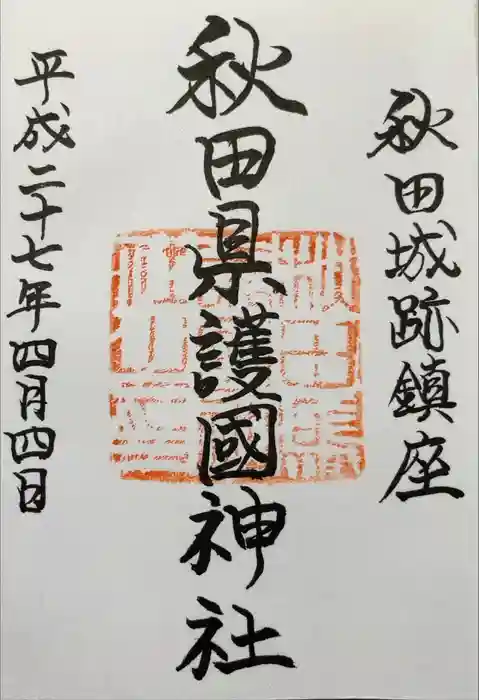 秋田城跡鎮座
秋田県護國神社
平成二十七年四月四日